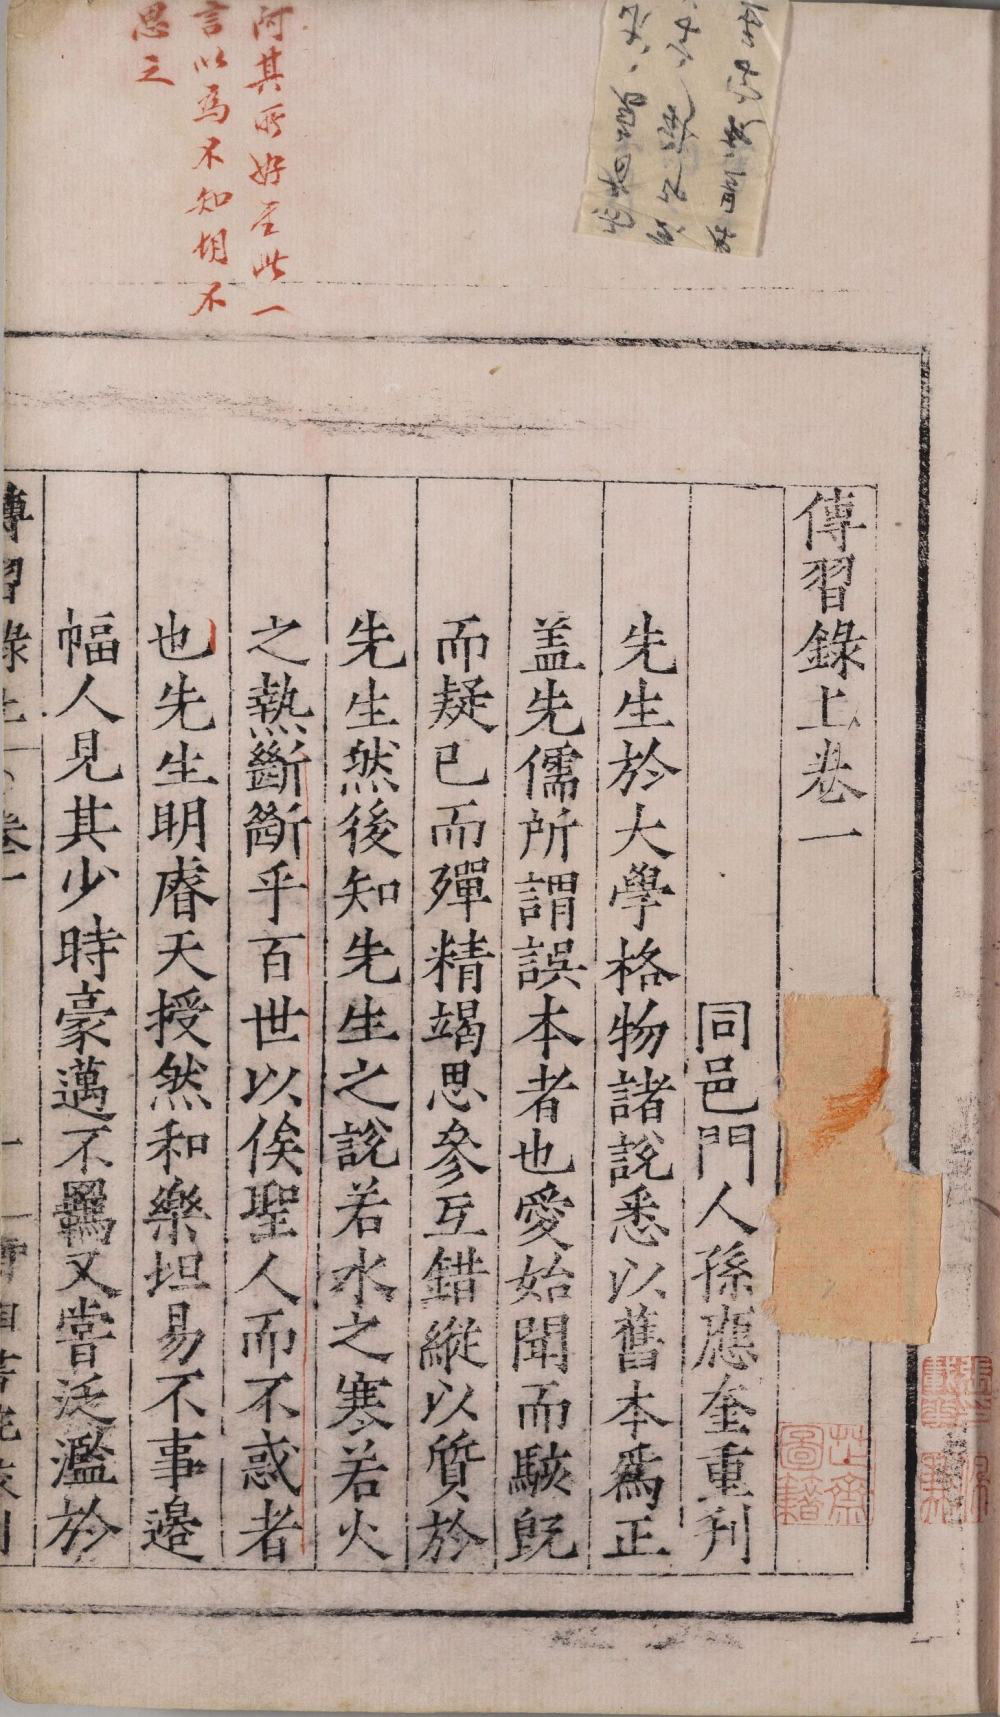 傳習錄上卷一
同邑門人孫應奎重刋
先生於大學格物諸說悉以舊本爲正
盖先儒所謂誤本者也愛始聞而駭旣
而疑已而殫精竭思參互錯縱以質於
先生然後知先生之說若水之寒若火
之熱斷斷乎百世以俟聖人而不惑者
也先生明睿天授然和樂坦易不事邉
幅人見其少時豪邁不羈又嘗泛濫於
傳習錄上
卷一
阿其所好至此一
言以爲不知胡不
思之
圖籍